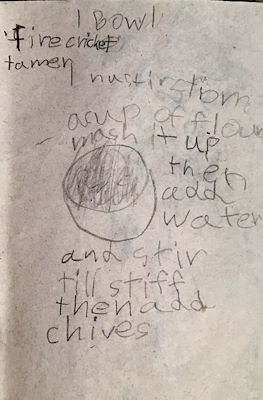 1 Bowl
firecricket
tamen
1 nustirstiom
a cup of flour
mash it up
then
add
water
and stir
till stiff
then add
chives